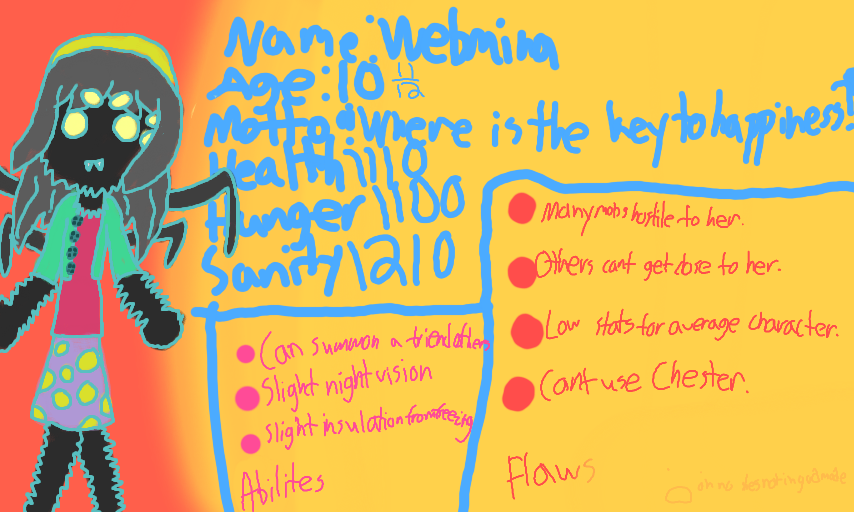 Name: Webmina
Age: 10 11/12
Motto "Where is the key to happiness?"
Health\110
Hunger\100
Sanity\210
Many mobs hostile to her.
Others cant get close to her.
Low stats for average character.
Cant use Chester.
Flaws
Can summon a friend often
Slight night vision
slight insulation from freezing
Abilites
oh no